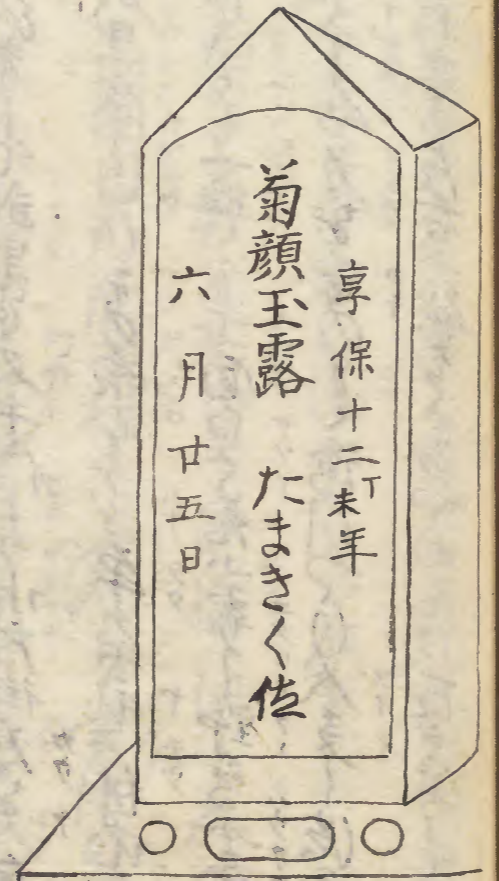 享保十二丁未年
菊顔玉露 たまきく位
六月廿五日